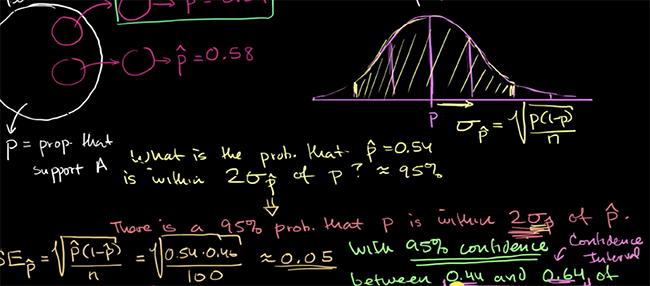 p̂ = 0.58
P
σp̂ = √(p(1-p)/n)
P = prop. that support A
What is the prob. that p̂ = 0.54
is within 2σp̂ of p? ≈ 95%
There is a 95% prob. that p is within 2σp̂ of p̂.
SEp̂ = √(p̂(1-p̂)/n) = √(0.54·0.46/100) ≈ 0.05
With 95% confidence
Confidence Interval
between 0.44 and 0.64, of